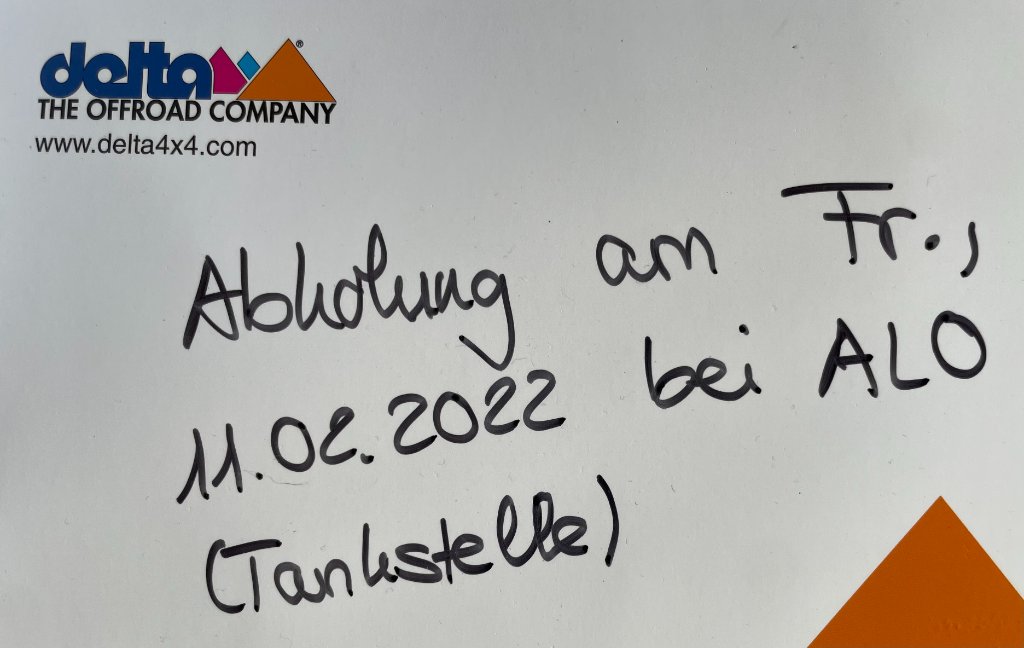 delta®
THE OFFROAD COMPANY
www.delta4x4.com
Abholung am Fr.,
11.02.2022 bei ALO
(Tankstelle)